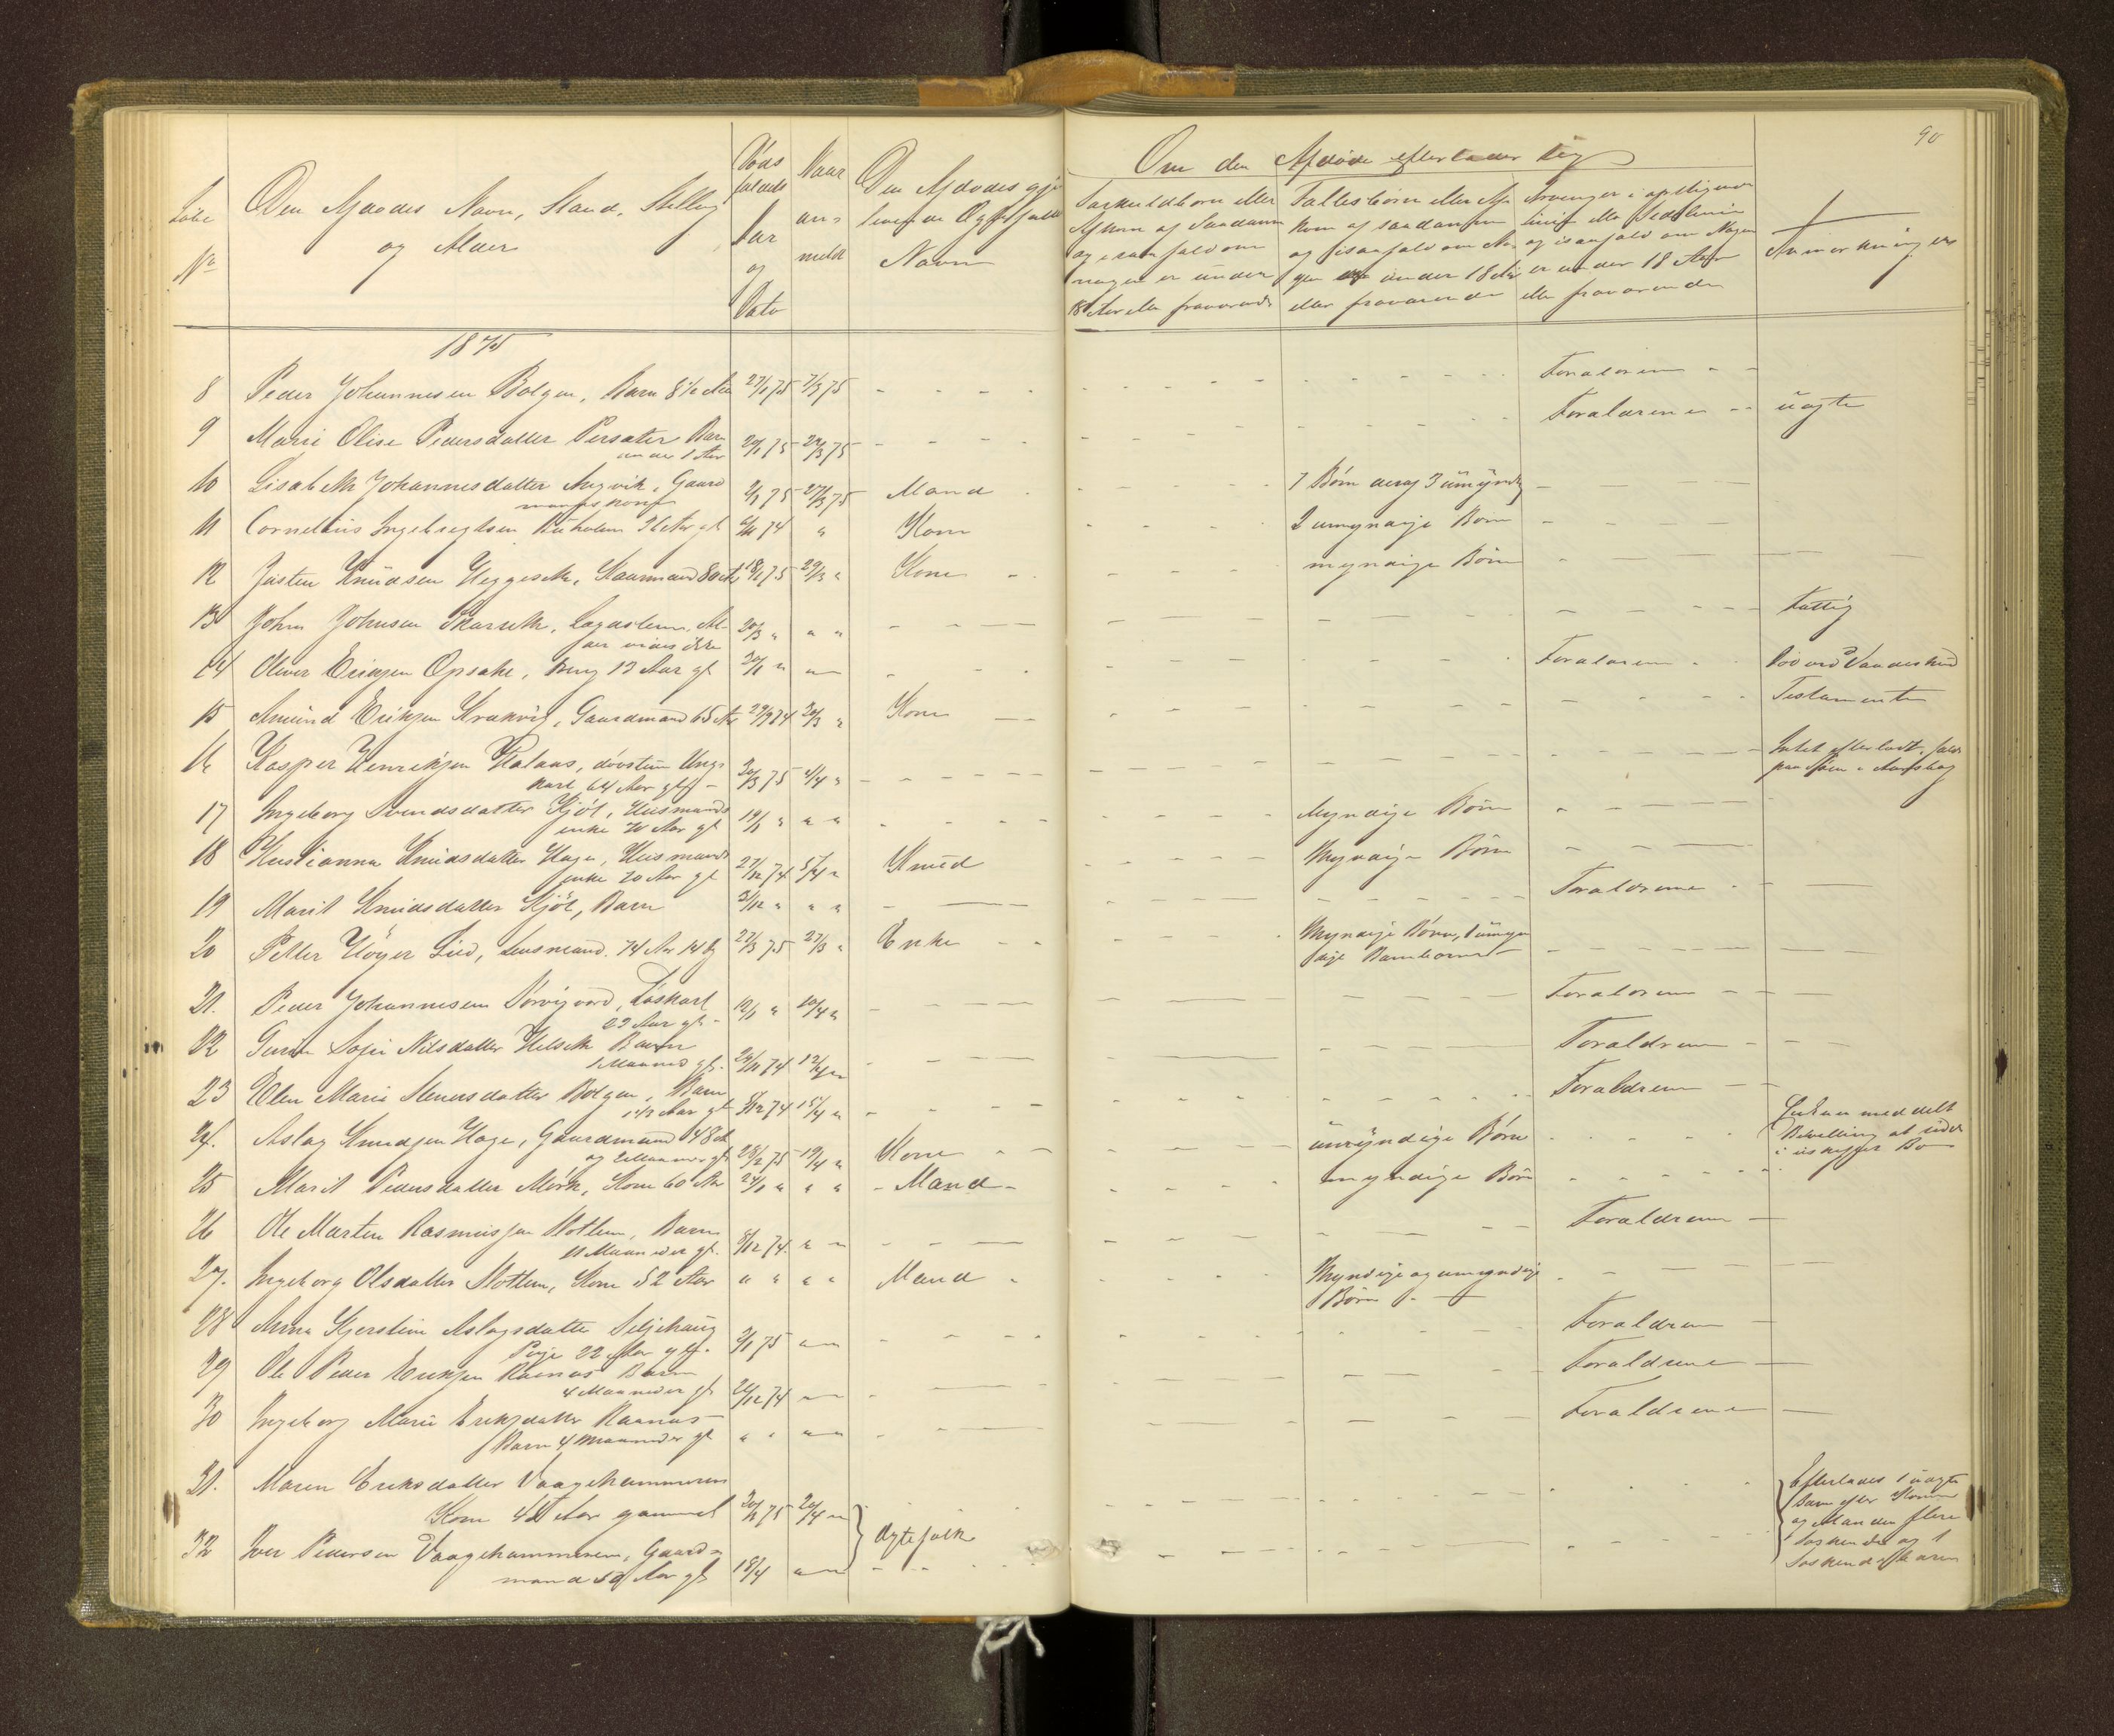 90
Løbe
No
Den Afdødes Navn, Stand, Stilling
og Alder
Døds
faldets
Aar
og
Dato
Naar
an-
meldt
Den Afdødes gjen
levende Ægtefælles
Navn
Om den Afdøde efterlader sig
Særkuldbørn eller
Afkom af Saadanne
og i saafald om
nogen er under
18 Aar eller fraværende
Fællesbørn eller Af-
kom af saadanne
og i saafald om No-
gen er under 18 Aar
eller fraværende
Arvinger i opstigende
linie eller Sidelinie
og i saafald om Nogen
er under 18 Aar
eller fraværende
Anmærkninger
1875
8 Peder Johannesen Bolgen, Barn 8½ Aar 27/1 75 7/3 75 Forældrene
9 Marie Olise Pedersdatter Persæter Barn 20/1 75 24/3 75 Forældrene uægte
under 1 Aar
10 Lisabeth Johannesdatter Angvik, Gaard 2/1 75 27/3 75 Mand 7 Børn deraf 3 umyndig
mands kone
11 Cornelius Ingebrigtsen 74 " Kone 2 umyndige Børn
12 Josten Knudsen Heggeseth, Kaarmand 80 Aar 18/1 75 29/3 " Kone myndige Børn
13 John Johnsen Skarseth, Lægdslem. Al- 20/3 " " " Fattig
der vides ikke
14 Oliver Eriksen Opsahl, Dreng 13 Aar gl 30/1 " " Forældrene Død ved Vaadeskud
15 Amund Eriksen Krakvig, Gaardmand 65 Aar 29/9 74 30/3 " Kone Testamente
16 Kasper Henriksen Halaas, døvstum Ungs Intet efterladt,
karl 64 Aar gl 30/3 75 4/4 "
17 Ingeborg Svendsdatter Kjøl, Husmands 19/1 " " " Myndige Børn
enke 70 Aar gl
18 Kristianna Knudsdatter Hage, Husmands 27/12 74 5/4 " Knud Myndige Børn
enke 70 Aar gl
19 Marit Knudsdatter Kjøl, Barn 3/12 " " " Forældrene
20 Petter Høyer Lied, Lensmand. 74 Aar 14 Dg 27/3 75 27/3 " Enke Myndige Børn, 1 umyn
dige Barnebørn
21. Peder Johannesen Sørvigvord, Løskarl 12/1 " 10/4 " Forældrene
23 Aar gl
22 Guru Sofie Nilsdatter Helseth Barn Forældrene
1 Maaned gl. 24/11 74 12/4 "
23 Elen Marie Stenersdatter Bolgen, Barn Forældrene
1½ Aar gl 8/12 74 15/4 "
24. Aslag Knudsen Hage, Gaardmand 48 Aar Kone umyndige Børn Enken meddelt
og 2 Maaneder gl 28/2 75 19/4 " Bevilling at sidde
i uskiftet Bo
25 Marit Pedersdatter Mørk, Kone 60 Aar 24/1 " " " - Mand - myndige Børn
26 Ole Martin Rasmussen Stotlem, Barn Forældrene
11 Maaneder gl. 8/12 74 " "
27. Ingeborg Olsdatter Stotlem, Kone 52 Aar " " " " Mand Myndige og umyndige
Børn
28 Anne Kjerstine Aslagsdatter Siljehaug Forældrene
Pige 22 Aar gl. 3/1 75 " "
29 Ole Peder Eriksen Raanas Barn Forældrene
4 Maaneder gl 24/12 74 " "
30 Ingeborg Marie Eriksdatter Raanas Forældrene
Barn 4 Maaneder gl " " " "
31. Maren Eriksdatter Vaagehammeren
Kone 45 Aar gammel 75 20/4 "
32 Iver Pedersen Vaagehammeren, Gaard-
mand 50 Aar gl 18/4 " "
Ægtefolk
Efterlades 1 uægte
Barn efter Konen
og Manden flere
Søskende og 1
Søskendebarn